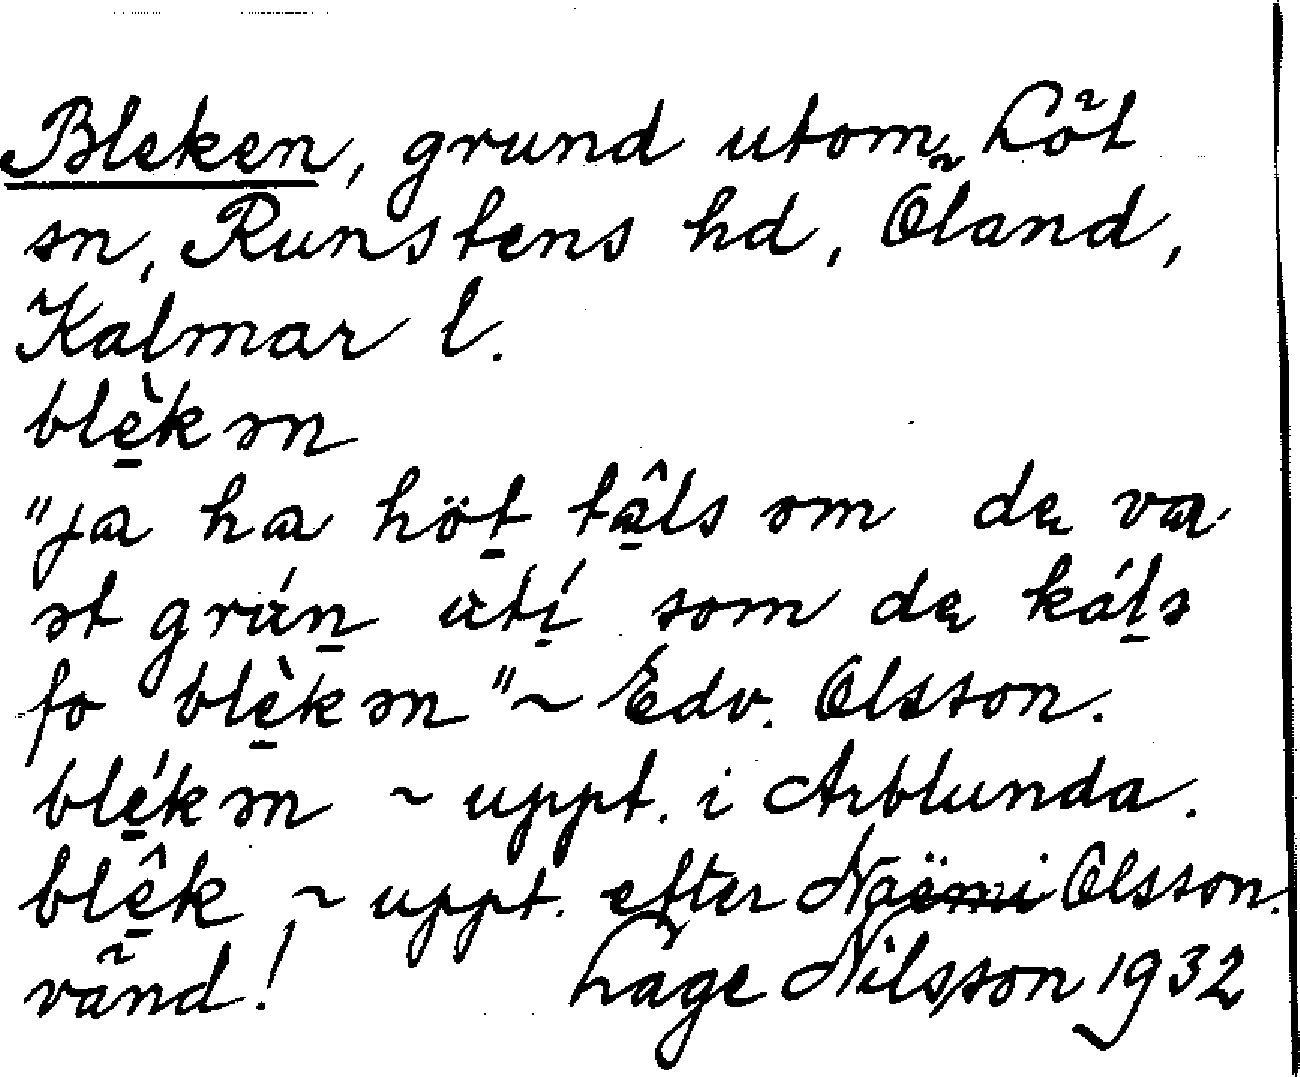 Bleken, grund utom Löt
sn, Runstens hd, Öland,
Kalmar l.
blè̱kən
"ja ha höṯ tâ̱ls om dę va
ət grúṉ ùtí̱ som dę káḻs
fo blè̱kən" ~ Edv. Olsson.
blé̱kən ~ uppt. i Arblunda.
blê̱k ~ uppt. efter Naëmi Olsson.
vänd! Lage Nilsson 1932